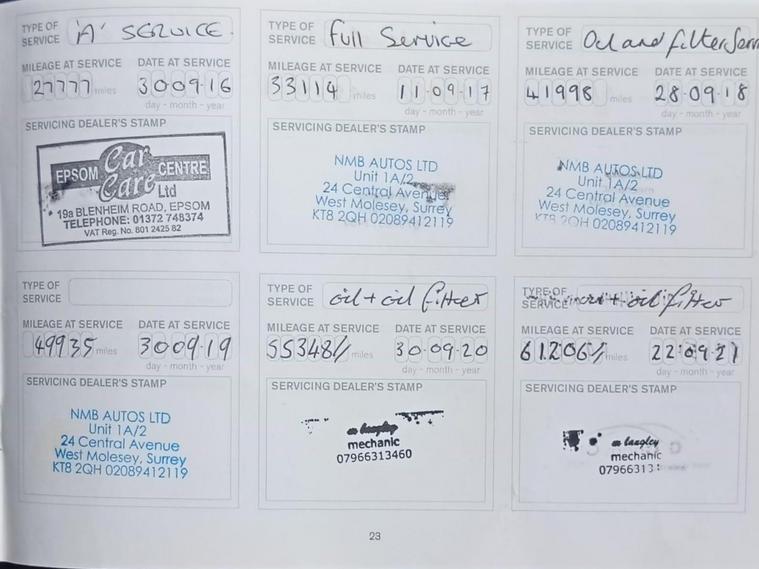 TYPE OF SERVICE 'A' SERVICE
MILEAGE AT SERVICE DATE AT SERVICE
27777 miles 30 09 16
day - month - year
SERVICING DEALER'S STAMP
EPSOM Car Care CENTRE
Ltd
19a BLENHEIM ROAD, EPSOM
TELEPHONE: 01372 748374
VAT Reg. No. 801 2425 82
TYPE OF SERVICE Full Service
MILEAGE AT SERVICE DATE AT SERVICE
33114 miles 11 09 17
day - month - year
SERVICING DEALER'S STAMP
NMB AUTOS LTD
Unit 1A/2
24 Central Avenue
West Molesey, Surrey
KT8 2QH 02089412119
TYPE OF SERVICE Oil and filter
MILEAGE AT SERVICE DATE AT SERVICE
41998 miles 28 09 18
day - month - year
SERVICING DEALER'S STAMP
NMB AUTOS LTD
Unit 1A/2
24 Central Avenue
West Molesey, Surrey
KT8 2QH 02089412119
TYPE OF SERVICE
MILEAGE AT SERVICE DATE AT SERVICE
49935 miles 30 09 19
day - month - year
SERVICING DEALER'S STAMP
NMB AUTOS LTD
Unit 1A/2
24 Central Avenue
West Molesey, Surrey
KT8 2QH 02089412119
TYPE OF SERVICE oil + oil filter
MILEAGE AT SERVICE DATE AT SERVICE
55348// miles 30-09-20
day - month - year
SERVICING DEALER'S STAMP
langley
mechanic
07966313460
TYPE OF SERVICE + oil filter
MILEAGE AT SERVICE DATE AT SERVICE
61206// miles 22 09 21
day - month - year
SERVICING DEALER'S STAMP
langley
mechanic
07966313
23